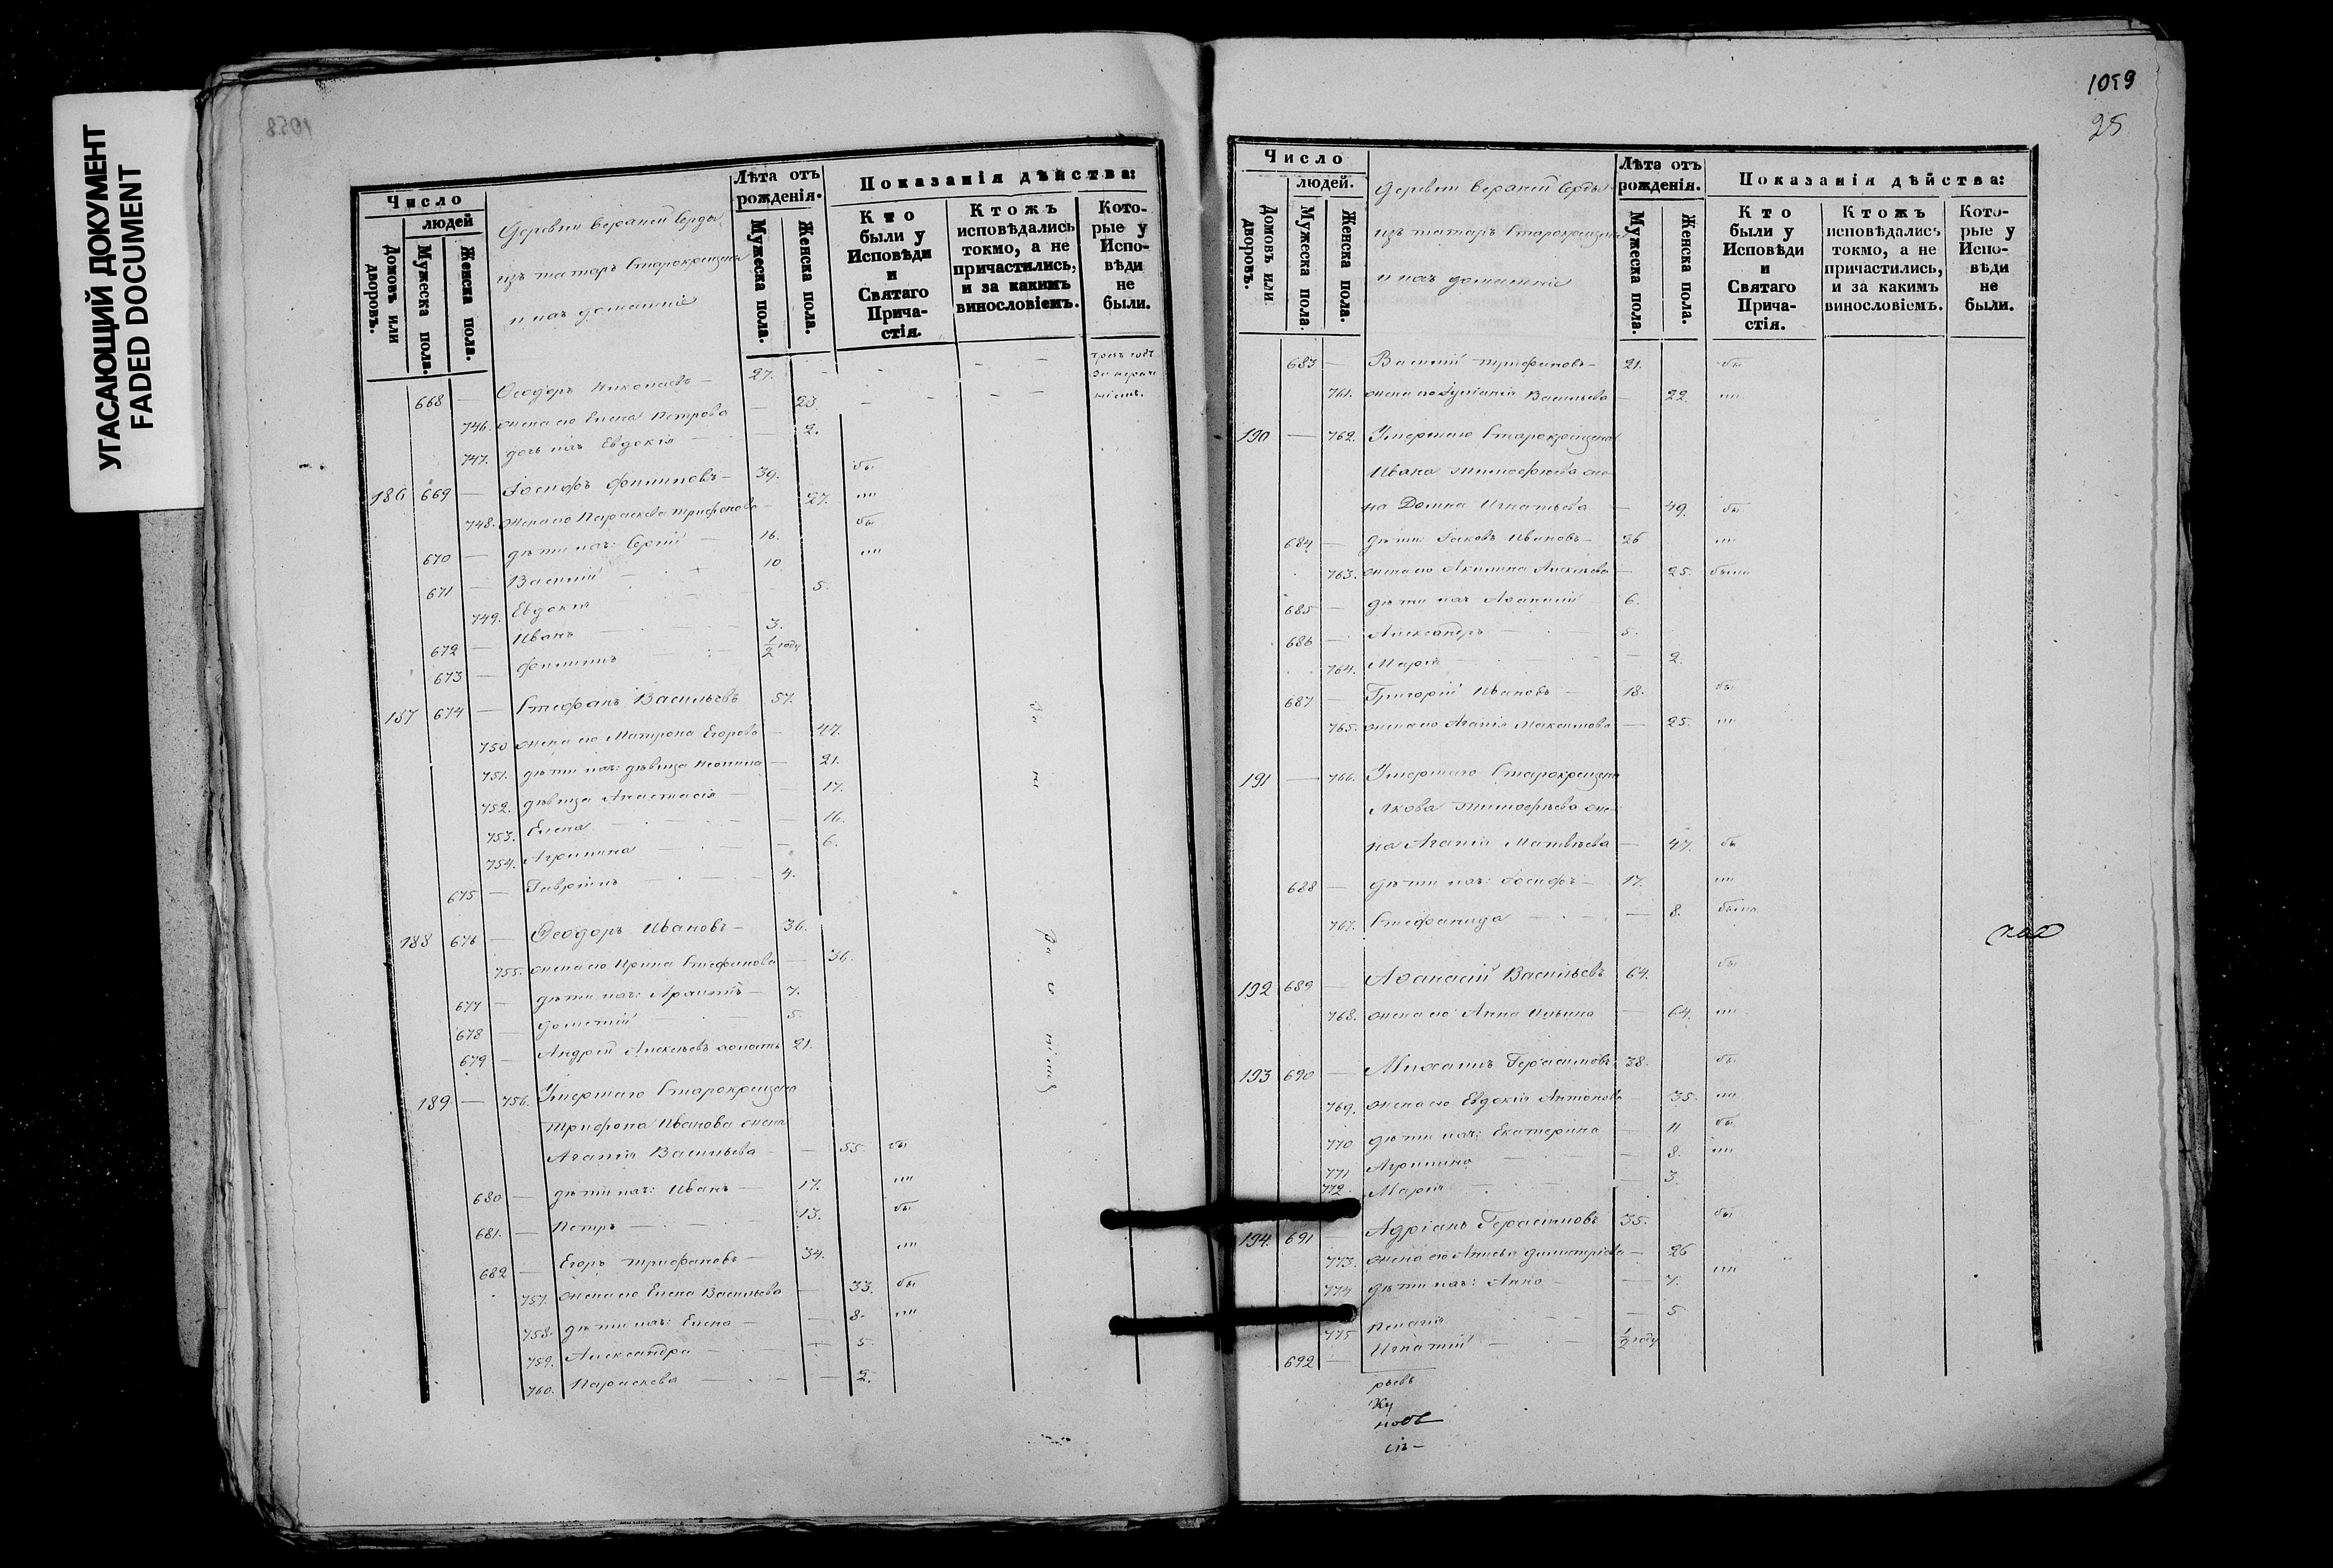 УГАСАЮЩИЙ ДОКУМЕНТ
FADED DOCUMENT
1058
Число
людей
Домовъ или дворовъ.
Мужеска пола.
Женска пола.
Деревни Верхней Серды
изъ татаръ Старокрещены
и ихъ домашніе
Лѣта отъ рожденія.
Мужеска пола.
Женска пола.
Показанія дѣйства:
Кто были у Исповѣди и Святаго Прича-стія.
Ктожъ исповѣдались токмо, а не причастились, и за какимъ винословіемъ.
Кото-рые у Испо-вѣди не были.
668 — Ѳеодоръ Николаевъ — 27.
746. жена его Елена Петрова — 23.
747. дочь ихъ Евдокія — 2.
186 669 — Іосифъ Филиповъ — 39. бы
748. жена его Параскева Трифонова — 27. ли
670 — дѣти ихъ: Сергій — 16. бы
671 — Василій — 10 ли
749. Евдокія 5.
672 — Иванъ — 3.
673 — Филиппъ — 1/2 году
187 674 — Стефанъ Васильевъ 57.
750 жена его Матрона Егорова — 47.
751. дѣти ихъ: дѣвица — 21.
752. дѣвица Анастасія — 17.
753. Елена — 16.
754. Агрипина — 6.
675 — Гавріилъ — 4.
188 676 — Ѳеодоръ Ивановъ — 36.
755. жена его Ирина Стефанова — 36.
677 — дѣти ихъ: — 7.
678 — Дометій 5.
679 — Андрей Алексѣевъ холостъ 21.
189 — 756. Умершаго Старокрещена
Трифона Иванова жена
Агапія Васильева — 55 бы
680 — дѣти ихъ: Иванъ — 17. ли
681. — Петръ — 13. бы
682 — Егоръ Трифоновъ — 34. ли
757. жена его Елена Васильева — 33. бы
758. дѣти ихъ: Елена — 8. ли
759. Александра — 5.
760. Параскева — 2.
1059
25
Число
людей.
Домовъ или дворовъ.
Мужеска пола.
Женска пола.
Деревни Верхней Серды
изъ татаръ Старокрещены
и ихъ домашніе
Лѣта отъ рожденія.
Мужеска пола.
Женска пола.
Показанія дѣйства:
Кто были у Исповѣди и Святаго Прича-стія.
Ктожъ исповѣдались токмо, а не причастились, и за какимъ винословіемъ.
Кото-рые у Испо-вѣди не были.
683 — Василій Трифоновъ — 21. бы
761. жена его Іуліанія Васильева — 22. ли
190 — 762. Умершаго Старокрещена
Ивана Тимофѣева же-
на Домна Игнатьева — 49. бы
684 — дѣти: Іаковъ Ивановъ — 26 ли
763. жена его Акилина Алексѣева — 25. были
685 — дѣти ихъ Аѳанасій 6.
686 — Александръ — 5.
764. Марія — 2.
687 — Григорій Ивановъ — 18. бы
765. жена его Агапія Максимова — 25. ли
191 — 766. Умершаго Старокрещена
Якова Тимофѣева же-
на Агапія Матвѣева — 47. бы
688 — дѣти ихъ: Іосифъ — 17. ли
767. Стефанида — 8. была
192 689 — Аѳанасій Васильевъ 64. бы
768. жена его Анна Ильина — 64. ли
193 690 — Михаилъ Герасимовъ 38. бы
769. жена его Евдокія Антонова 35. ли
770 дѣти ихъ: Екатерина — 11 бы
771 Агрипина — 8. ли
772. Марія — 3.
194. 691 Адріанъ Герасимовъ 35. бы
773. жена его Димитріева — 26 ли
774 дѣти ихъ: Анна — 7.
775 Пелагія — 5
692 — Игнатій — 1/2 году
рьевъ
Ку
новъ